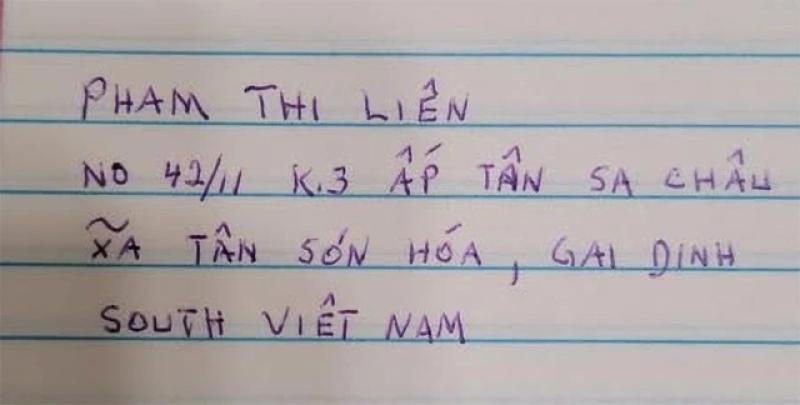 PHAM THI LIÊN
NO 42/11 K.3 ẤP TÂN SA CHÂU
XÃ TÂN SÓN HÓA, GAI DINH
SOUTH VIÊT NAM